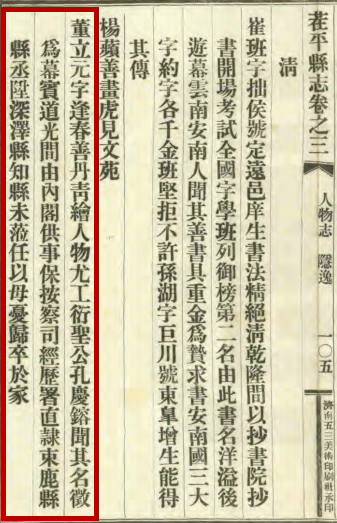 茌平縣志卷之三
人物志 隱逸
一〇五
濟南五三美術印刷社承印
清
崔班字拙侯號定遠邑庠生書法精絕清乾隆間以抄書院抄
書開場考試全國字學班列御榜第二名由此書名洋溢後
遊幕雲南安南人聞其善書具重金爲贄求書安南國三大
字約字各千金班堅拒不許孫湖字巨川號東臯增生能得
其傳
楊蘋善畫虎見文苑
董立元字逢春善丹靑繪人物尤工衍聖公孔慶鎔聞其名徵
爲幕賓道光間由內閣供事保按察司經歷署直隷束鹿縣
縣丞陞深澤縣知縣未蒞任以母憂歸卒於家